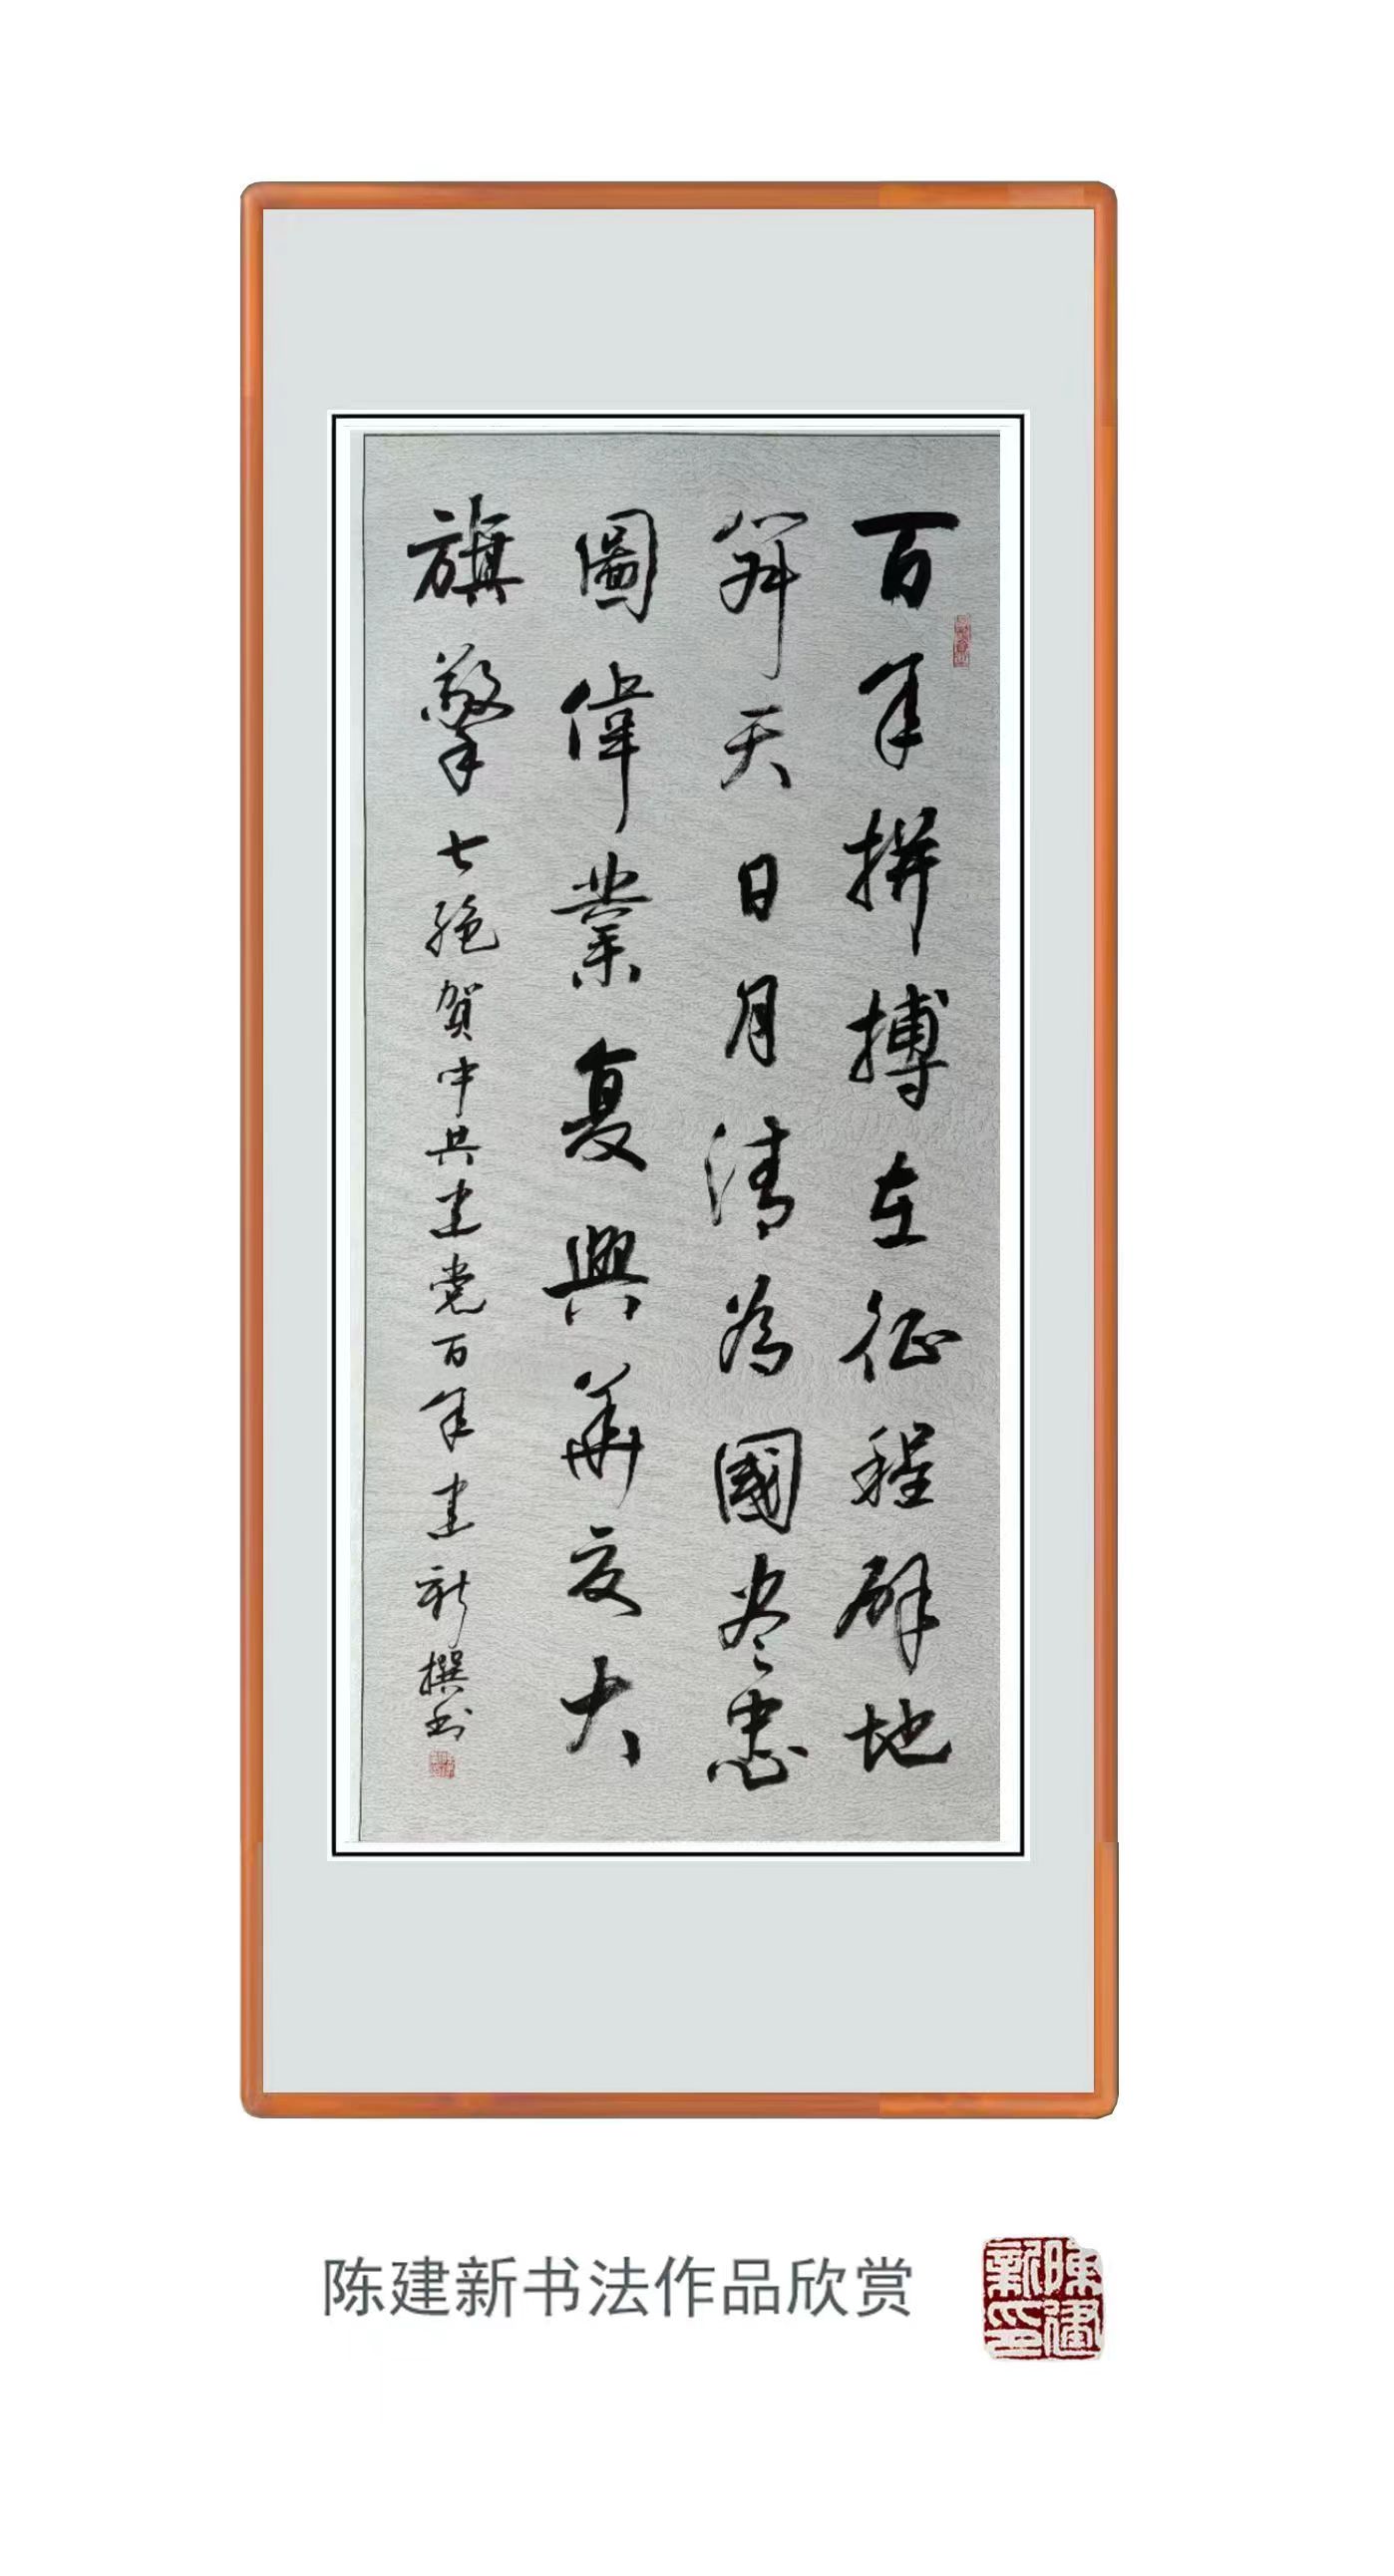 百年拼搏在征程辟地
算天日月清为國尽忠
圖偉業复興華夏大
旗擎七绝贺中共建党百年建新撰书
陈建新书法作品欣赏
陳建新印